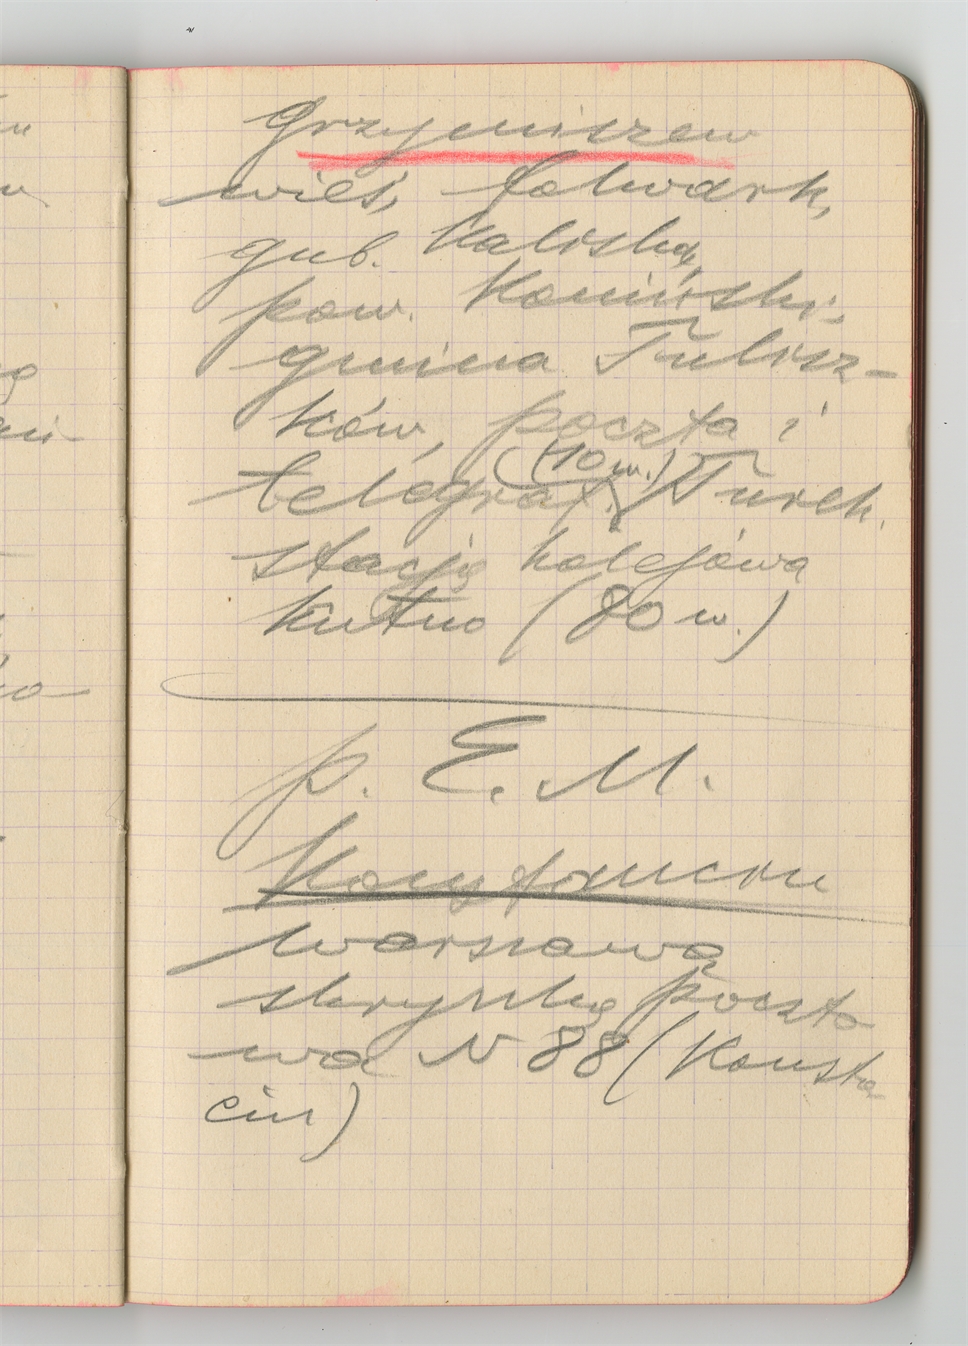 Grzymiszew
wieś, folwark,
gub. Kaliska,
pow. Koniński,
gmina Tulisz-
ków, poczta i
telegraf. (10 w.) Turek.
stacja kolejowa
Kutno (80 w.)
p. E. M.
Warszawa
skrzynka poczto
wa N 88 (Konsta
cin)